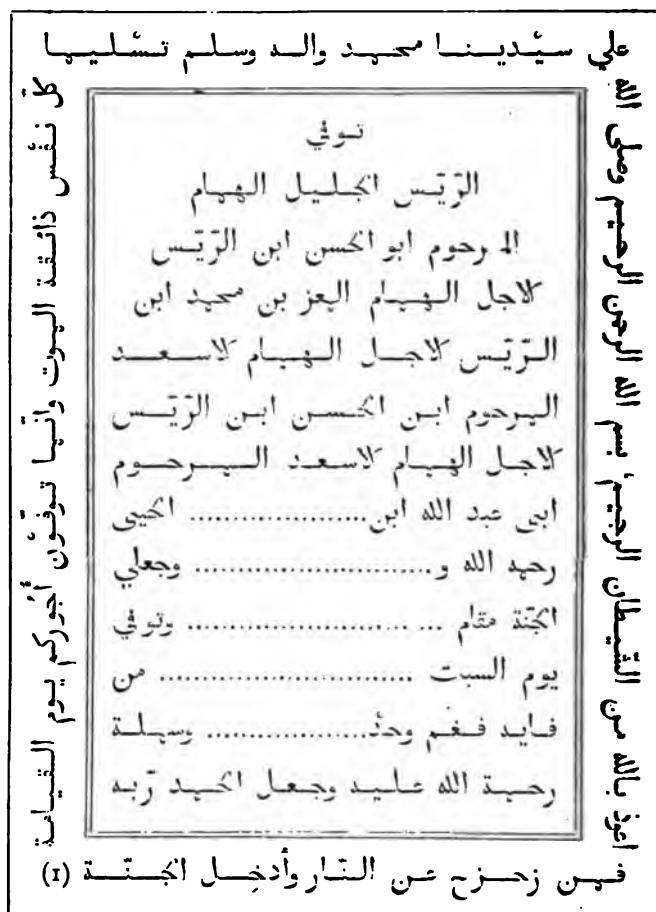 اعوذ بالله من الشّيطان الرجيم، بسم الله الرحمن الرحيم وصلى الله
علي سيّدينا محمد واله وسلم تسليما
كلّ نفس ذائقة الموت وانّما توفّون أجوركم يوم القيامة
فمن زحزح عن النّار وأدخل الجنّة (1)
توفي
الرّيّس الجليل الهمام
المرحوم ابو الحسن ابن الرّيّس
لاجل الهمام المعز بن محمد ابن
الرّيّس لاجل الهمام لاسعد
المرحوم ابن الحسن ابن الرّيّس
لاجل الهمام لاسعد المرحوم
ابى عبد الله ابن.................. الحيى
رحمه الله و........................ وجعلي
الجنّة مقام ... ...................... وتوفي
يوم السبت ......................... من
فايد فغم وحدّ.................. وسهلة
رحمة الله عليه وجعل الحمد ربّه